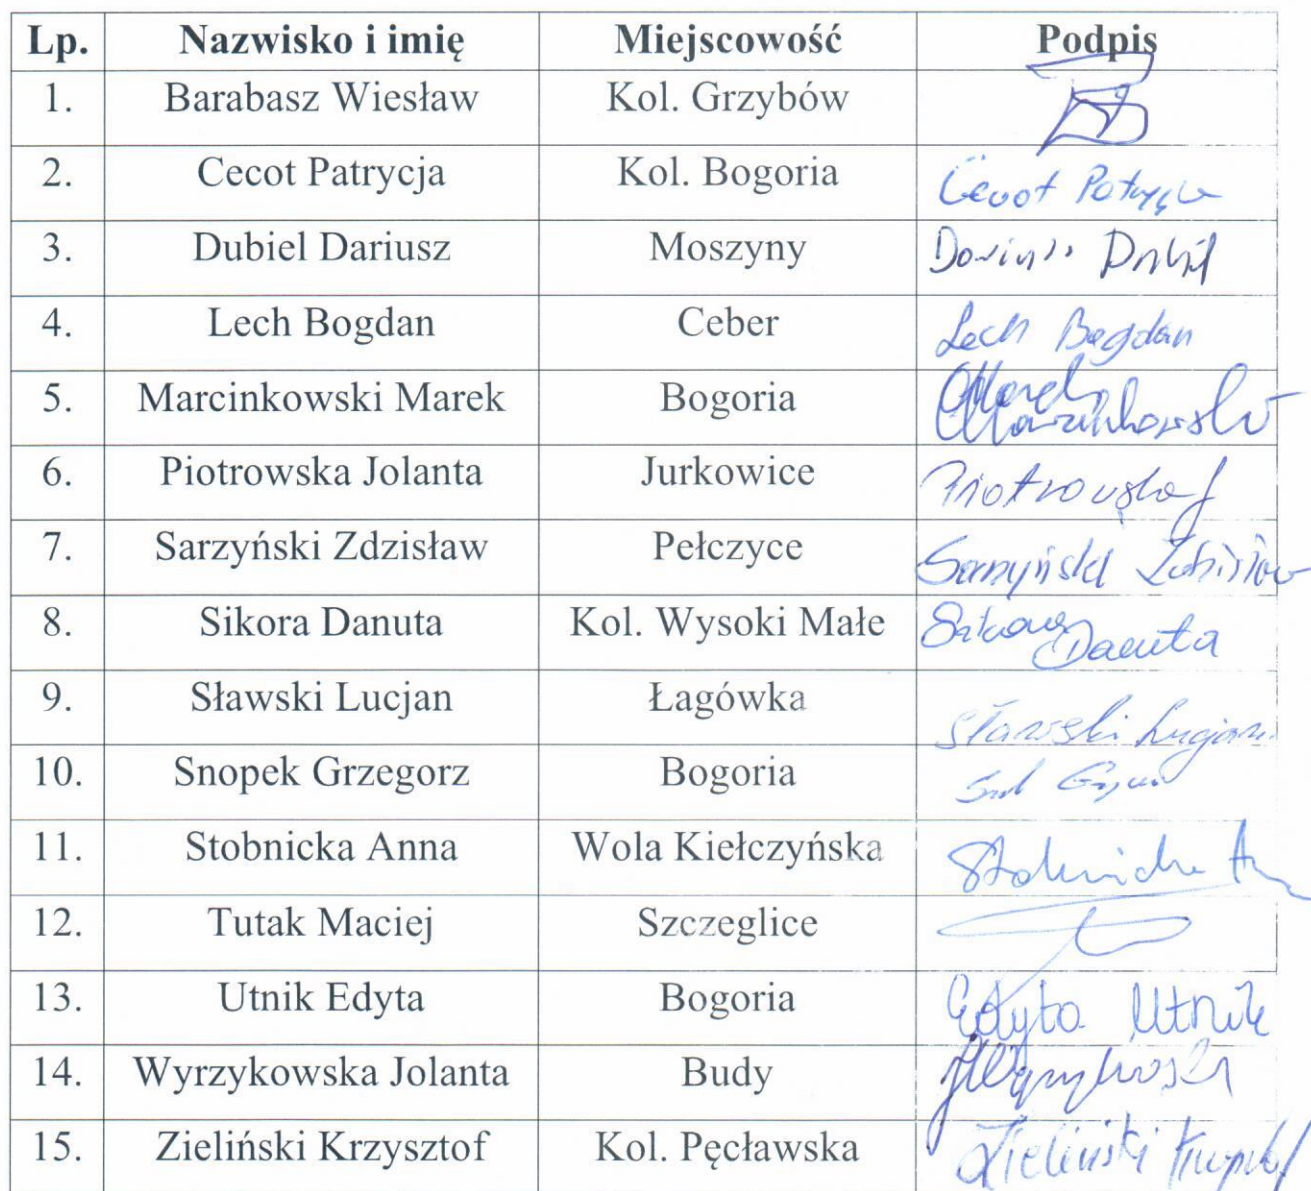 Lp. Nazwisko i imię Miejscowość Podpis
1. Barabasz Wiesław Kol. Grzybów
2. Cecot Patrycja Kol. Bogoria Cecot Patrycja
3. Dubiel Dariusz Moszyny Dariusz Dubiel
4. Lech Bogdan Ceber Lech Bogdan
5. Marcinkowski Marek Bogoria Marek Marcinkowski
6. Piotrowska Jolanta Jurkowice Piotrowska J
7. Sarzyński Zdzisław Pełczyce Sarzyński Zdzisław
8. Sikora Danuta Kol. Wysoki Małe Sikora Danuta
9. Sławski Lucjan Łagówka Sławski Lucjan
10. Snopek Grzegorz Bogoria
11. Stobnicka Anna Wola Kiełczyńska Stobnicka A
12. Tutak Maciej Szczeglice
13. Utnik Edyta Bogoria Edyta Utnik
14. Wyrzykowska Jolanta Budy JWyrzykowska
15. Zieliński Krzysztof Kol. Pęcławska Zieliński Krzysztof